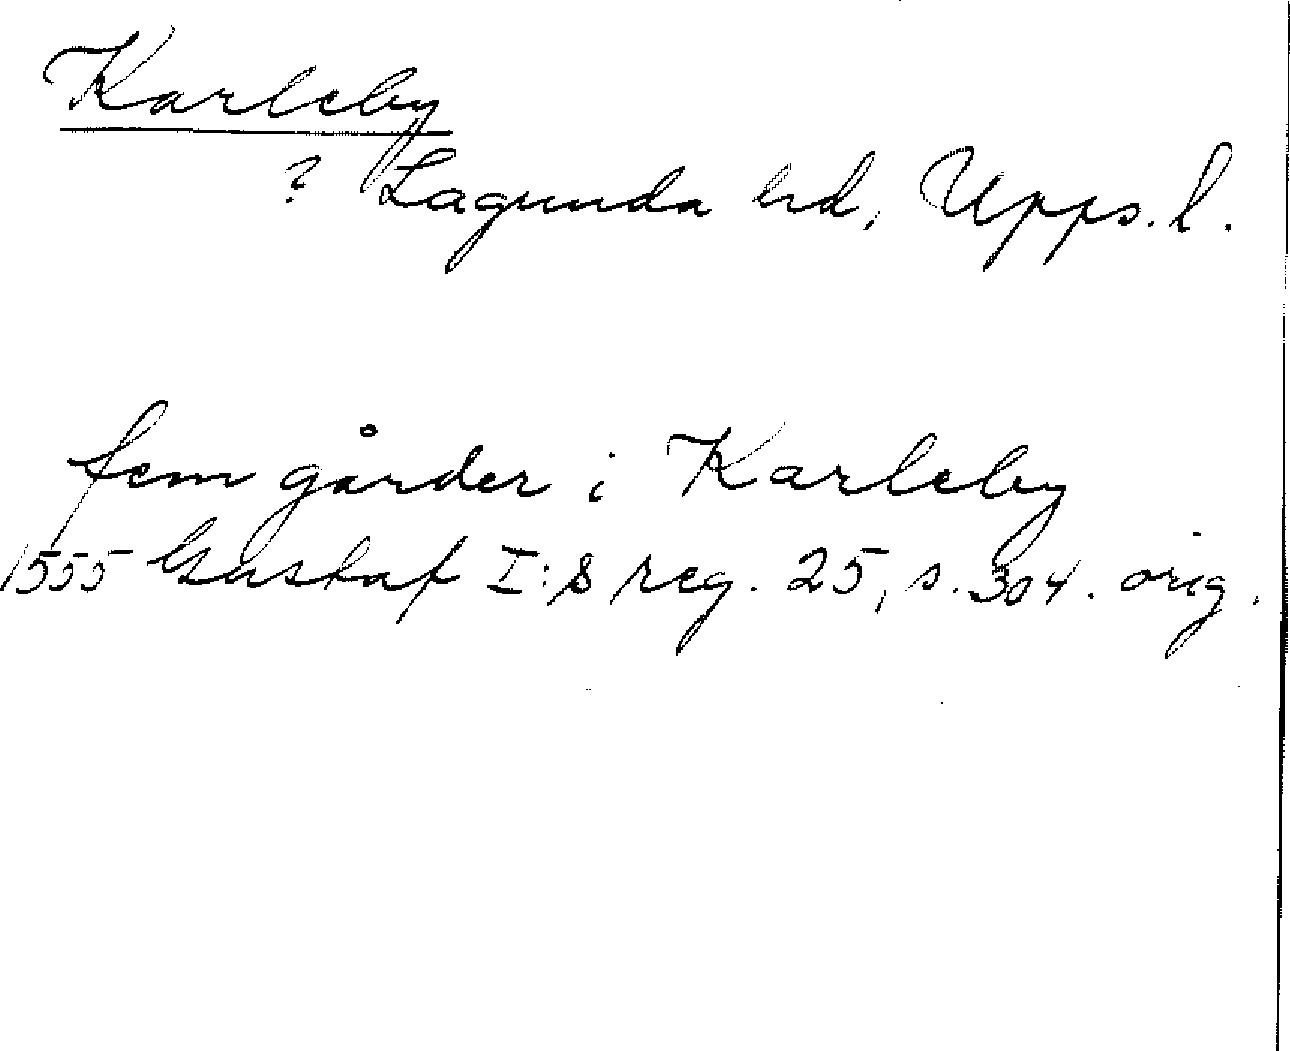 Karleby
? Lagunda hd, Upps. l.
fem gårder i Karleby
1555 Gustaf I:s reg. 25, s. 304. orig.